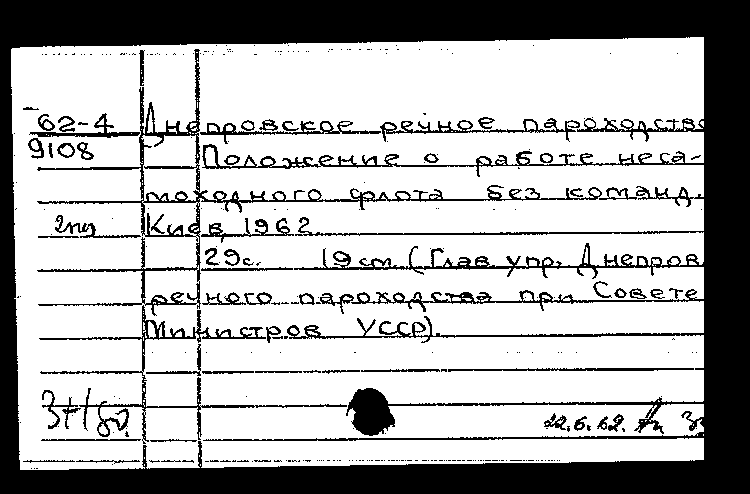 62-4 Днепровское речное пароходство
9108 Положение о работе неса-
моходного флота без команд.
2 экз Киев, 1962.
29с. 19 cm. (Глав упр. Днепров.
речного пароходства при Совете
Министров УССР).
22.6.62.